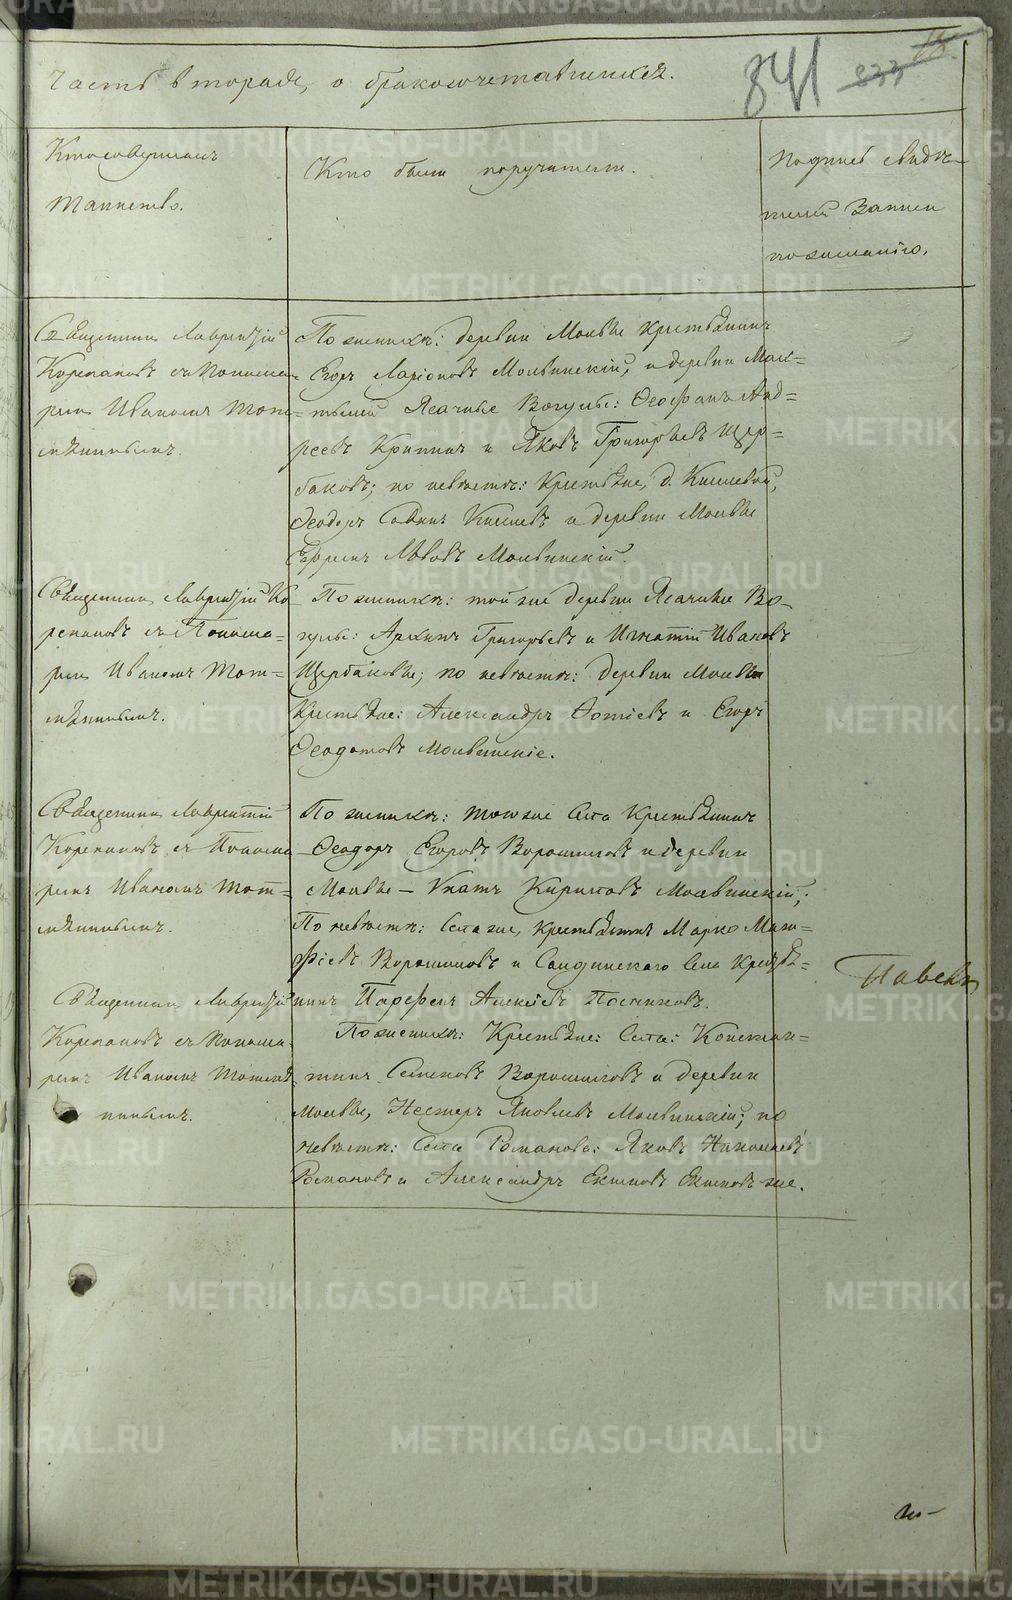 Часть вторая, о бракосочетавшихся.
841 833 18.
Кто совершалъ
таинство.
Кто были поручители.
Подпись свидѣ-
телей записи
по желанію.
Священникъ Лаврентій
Корепановъ съ Понома-
ремъ Иваномъ Тот-
мянинымъ.
По женихѣ: деревни Молвы крестьянинъ
Егоръ Ларіоновъ Молвинскій, и деревни
Ясачные Вогулы: Ѳеофанъ Анд-
реевъ и Яковъ Григорьевъ Щер-
баковъ; по невѣстѣ: Крестьяне, д. Киселевой,
Ѳеодоръ Савинъ Киселевъ и деревни Молвы
Ефремъ Львовъ Молвинскій.
Священникъ Лаврентій Ко-
репановъ съ Понома-
ремъ Иваномъ Тот-
мянинымъ.
По женихѣ: той же деревни Ясачные Во-
гулы: Архипъ Григорьевъ и Игнатій Ивановъ
Щербаковы; по невѣстѣ: деревни Молвы
Крестьяне: Александръ Фотіевъ и Егоръ
Ѳеодотовъ Молвинскіе.
Священникъ Лаврентій
Корепановъ съ Понома-
ремъ Иваномъ Тот-
мянинымъ.
По женихѣ: того же Села Крестьянинъ
Ѳеодоръ Егоровъ Ворошиловъ и деревни
Молвы – Игнатъ Кириловъ Молвинскій;
По невѣстѣ: Села же, крестьянинъ Марко
Ворошиловъ и Села Крестья-
нинъ Парфенъ Алексѣевъ Постниковъ.
Павелъ
Священникъ Лаврентій
Корепановъ съ Понома-
ремъ Иваномъ Тотмя-
нинымъ.
По женихѣ: Крестьяне: Села: Констан-
тинъ Семеновъ Ворошиловъ и деревни
Молвы, Нестеръ Яковлевъ Молвинскій; по
невѣстѣ: Села Романова: Яковъ Николаевъ
Романовъ и Александръ
METRIKI.GASO-URAL.RU